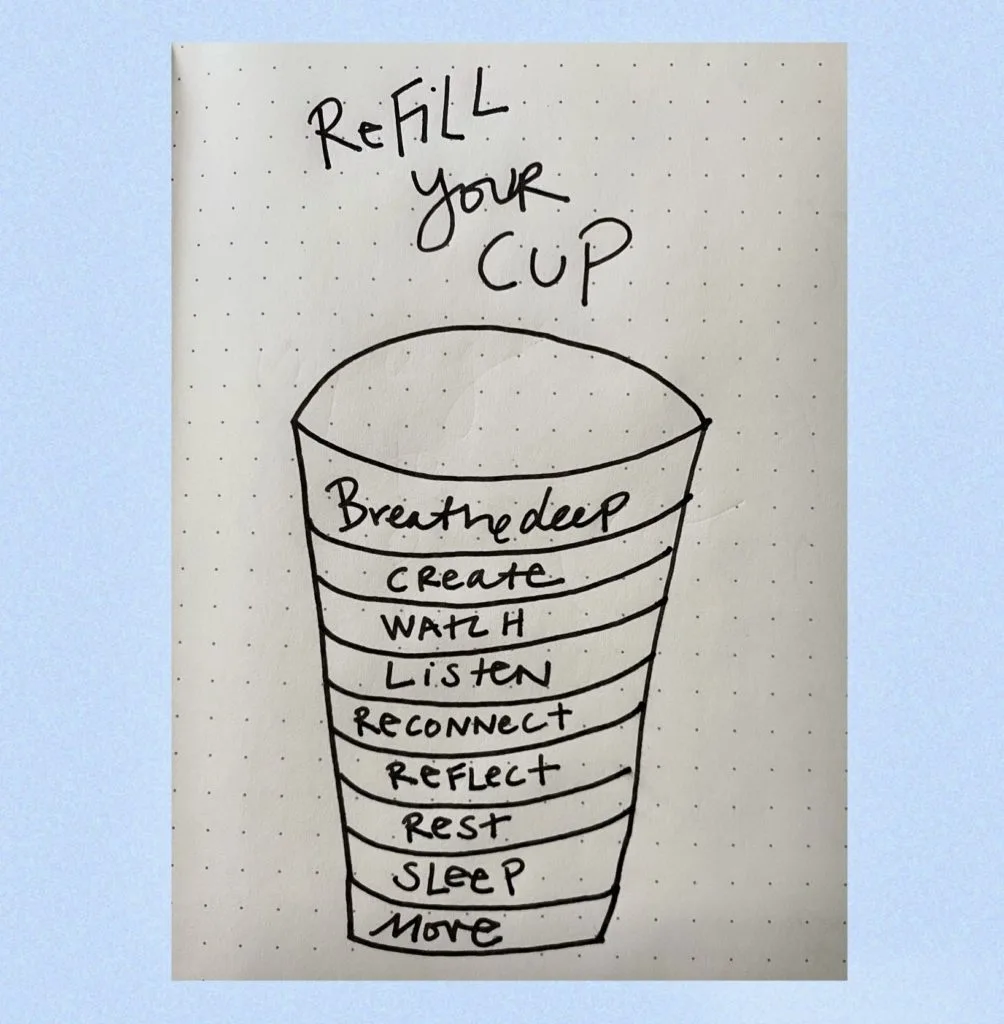 ReFiLL
youR
CUP
Breathe deep
CReate
WATCH
LiSteN
ReCONNeCt
ReFLeCt
ReSt
SLeeP
More